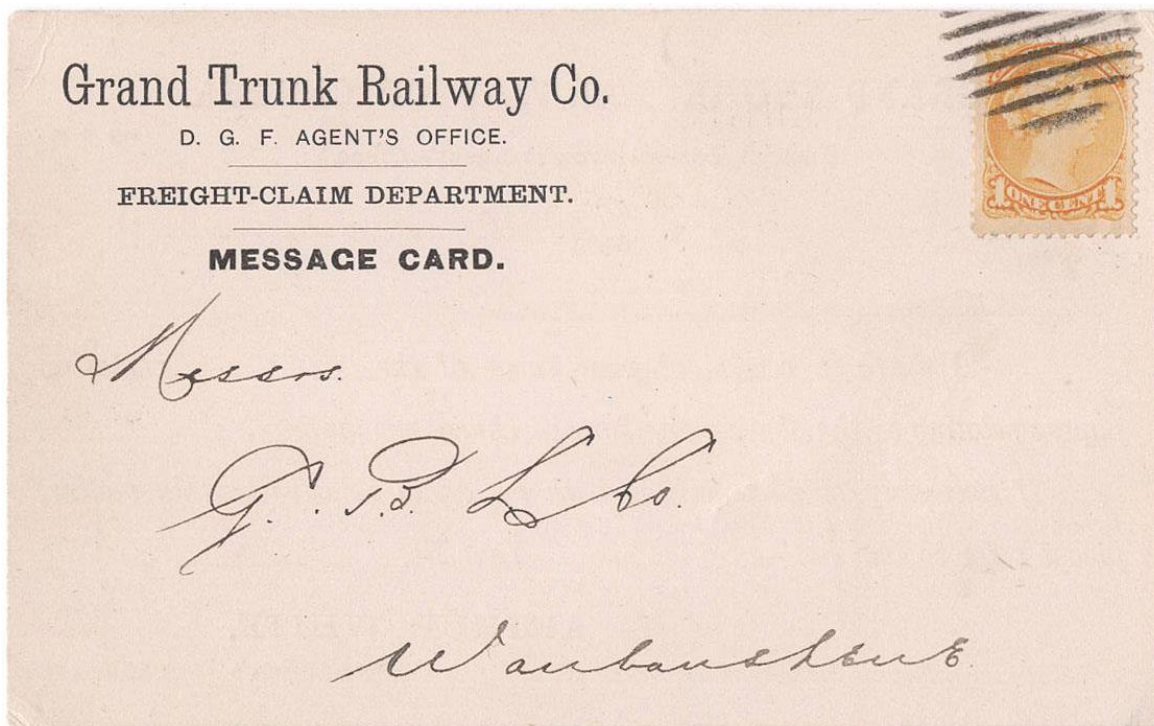 Grand Trunk Railway Co.
D. G. F. AGENT'S OFFICE.
FREIGHT-CLAIM DEPARTMENT.
MESSAGE CARD.
1 ONE CENT 1
Messrs.
G. B. L Co.
Waubaushene